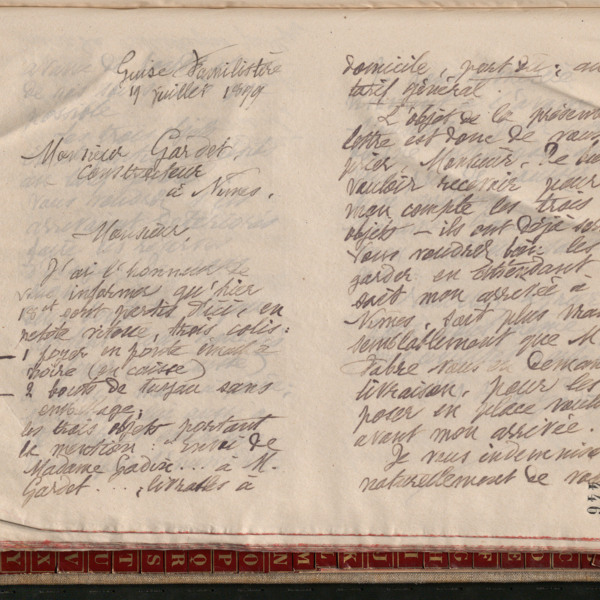 Guise Familistère
19 juillet 1899
Monsieur Gardet
Constructeur
à Nîmes.
Monsieur,
J'ai l'honneur de
vous informer qu'hier
18 sont partis d'ici, en
petite vitesse, trois colis:
1 foyer en fonte émail
noire (en caisse)
2 bouts de tuyau sans
emballage;
les trois objets portant
la mention: Envoi de
Madame Godin ... à M.
Gardet ... livrables à
domicile, port dû; au
tarif général.
L'objet de la présente
lettre est donc de vous
prier Monsieur, de
vouloir recevoir pour
mon compte les trois
objets - ils ont déjà
Vous voudrez bien les
garder en attendant
soit mon arrivée à
Nîmes, soit plus vrai
semblablement que M
Fabre vous en deman
livraison, pour les
poser en place
avant mon arrivée.
Je vous indemnise
naturellement de vos
446
X Y V U T S R Q P O N M L K J I H G F E D C